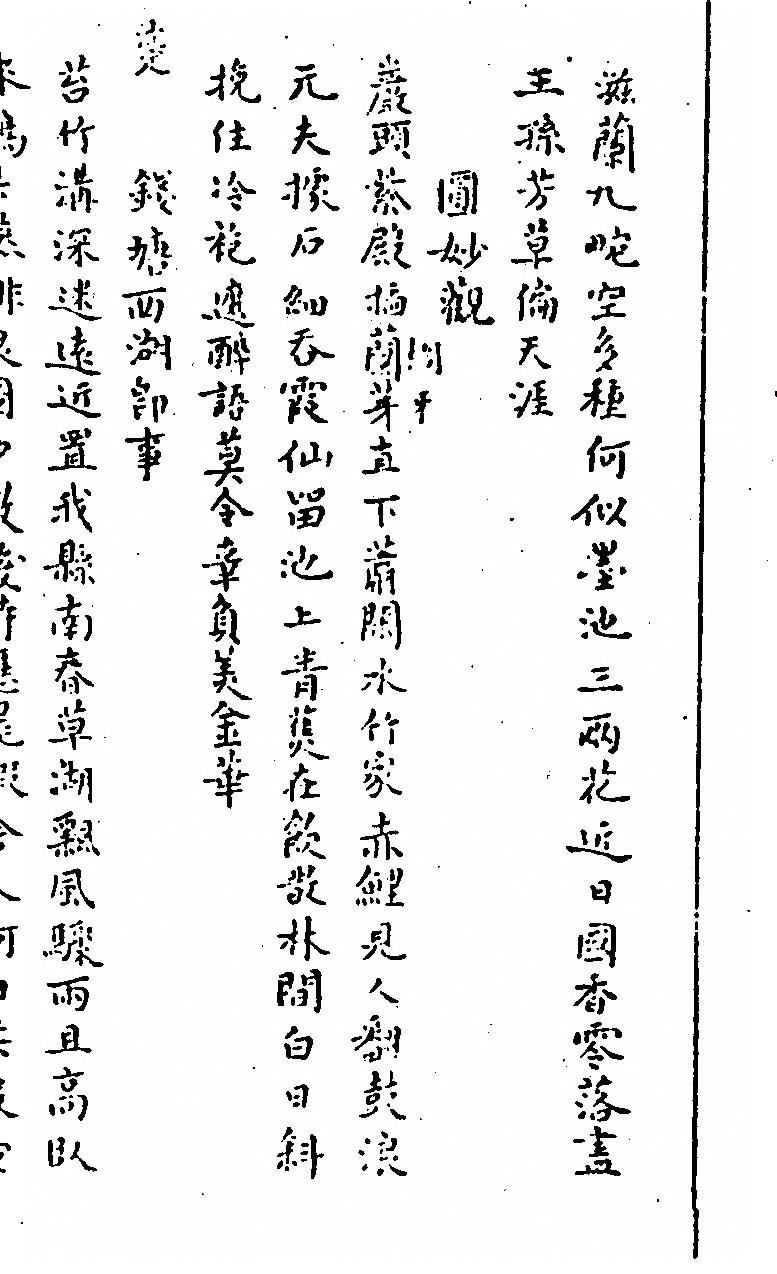 滋蘭九畹空多種何似墨池三兩花近日國香零落盡
王孫芳草徧天涯
圓妙觀
巖頭蔡殿搯蘭芽直下蕭關水竹家赤鯉見人翻鼓浪
元夫據石細吞霞仙留池上青蕉在飲散林間白日斜
挽住冷袍遮醉語莫令辜負美金華
錢塘西湖即事
苔竹溝深迷遠近置我縣南春草湖飄風驟雨且高臥